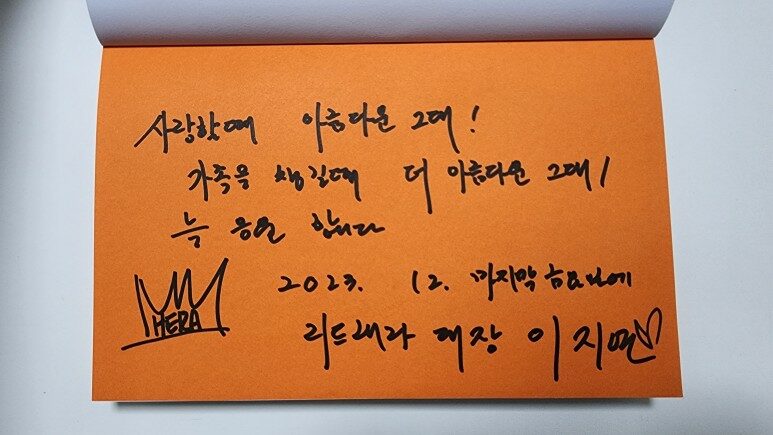 사랑할때 아름다운 그대!
가족을 챙길때 더 아름다운 그대!
늘 응원 합니다
HERA
2023. 12. 마지막 금요일에
리드헤라 대장 이지연